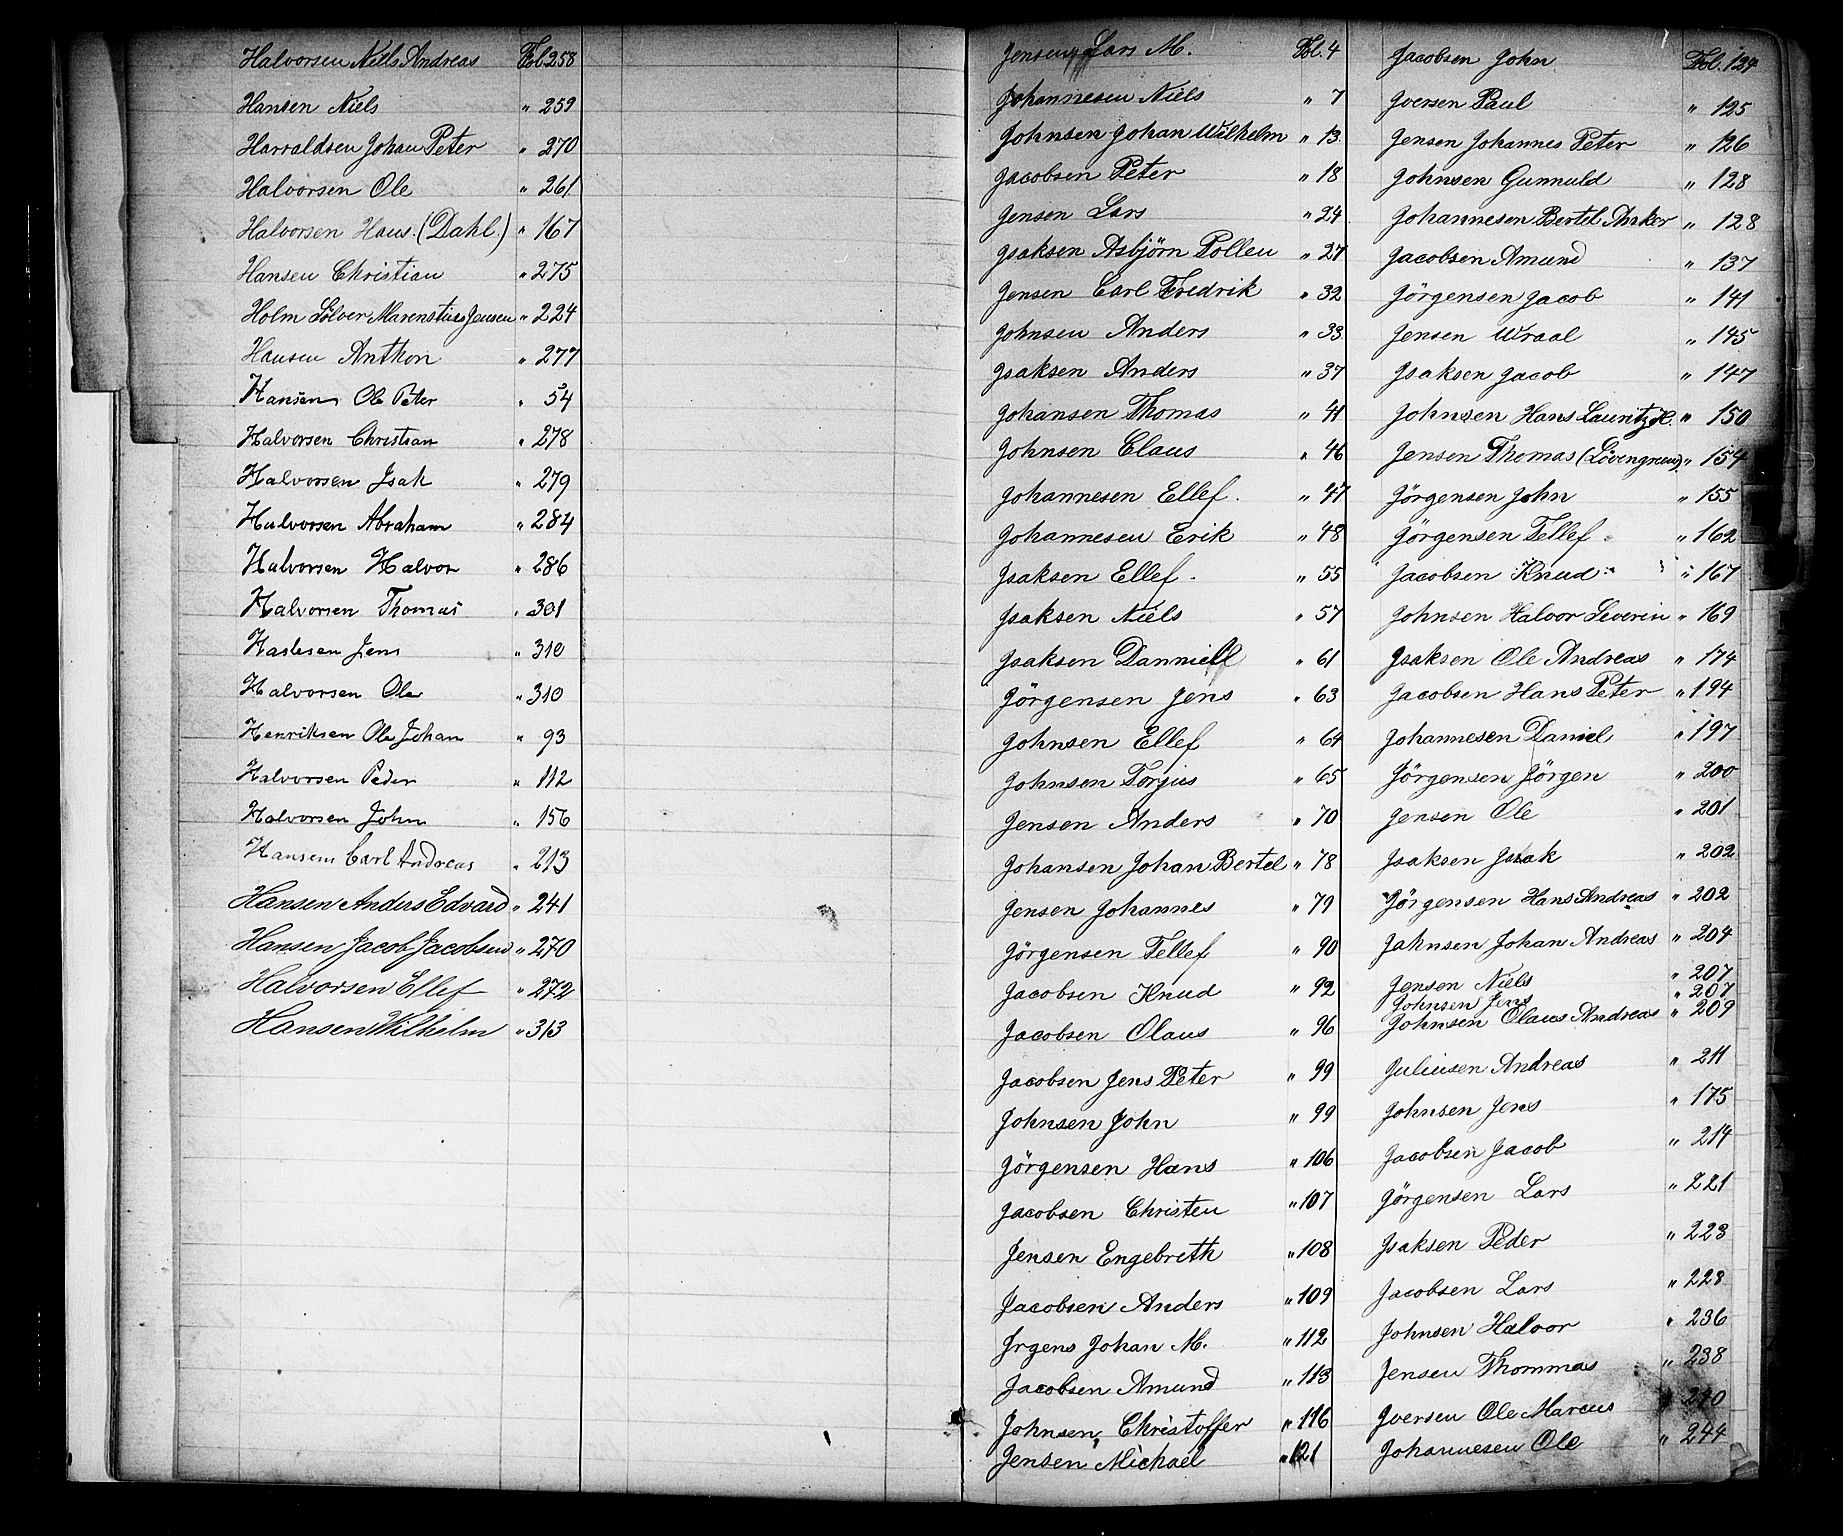 Halvorsen Niels Andreas Fol. 258
Hansen Niels " 259
Harraldsen Johan Peter " 270
Halvorsen Ole " 261
Halvorsen Hans. (Dahl.) " 167
Hansen Christian " 275
Holm Sölver Marenstius Jensen " 224
Hansen Anthon " 277
Hansen Ole Peter " 54
Halvorsen Christian " 278
Halvorsen Isak " 279
Halvorsen Abraham " 284
Halvorsen Halvor " 286
Halvorsen Thomas " 301
Haslesen Jens " 310
Halvorsen Ole " 310
Henriksen Ole Johan " 93
Halvorsen Peder " 112
Halvorsen John " 156
Hansen Carl Andreas " 213
Hansen Anders Edvard " 241
Hansen Jacob Jacobsen " 270
Halvorsen Ellef " 272
Hansen Wilhelm " 313
Jensen Lars M. Fol. 4
Johannesen Niels " 7
Johnsen Johan Wilhelm " 13
Jacobsen Peter " 18
Jensen Lars " 24
Isaksen Asbjörn Pollen " 27
Jensen Carl Fredrik " 32
Johnsen Anders " 33
Isaksen Anders " 37
Johansen Thomas " 41
Johnsen Claus " 46
Johannesen Ellef. " 47
Johannesen Erik " 48
Isaksen Ellef. " 55
Isaksen Niels " 57
Isaksen Danniel " 61
Jörgensen Jens " 63
Johnsen Ellef " 64
Johnsen Torjus " 65
Jensen Anders " 70
Johansen Johan Bertel " 78
Jensen Johannes " 79
Jörgensen Tellef " 90
Jacobsen Knud " 92
Jacobsen Olaus " 96
Jacobsen Jens Peter " 99
Johnsen John " 99
Jörgensen Hans " 106
Jacobsen Christen " 107
Jensen Engebreth " 108
Jacobsen Anders " 109
Irgens Johan M. " 112
Jacobsen Amund " 113
Johnsen Christoffer " 116
Jensen Michael " 121
Jacobsen John Fol. 124
Iversen Paul " 125
Jensen Johannes Peter " 126
Johnsen Gunnuld " 128
Johannesen Bertel Anker " 128
Jacobsen Amund " 137
Jörgensen Jacob " 141
Jensen Wraal " 145
Isaksen Jacob " 147
Johnsen Hans Lauritz H. " 150
Jensen Thomas (Lövengreen) " 154
Jörgensen John " 155
Jörgensen Tellef " 162
Jacobsen Knud " 167
Johnsen Halvor Severin " 169
Isaksen Ole Andreas " 174
Jacobsen Hans Peter " 194
Johannesen Daniel " 197
Jörgensen Jörgen " 200
Jensen Ole " 201
Isaksen Isak " 202
Jörgensen Hans Andreas " 202
Jahnsen Johan Andreas " 204
Jensen Niels " 207
Johnsen Jens " 207
Johnsen Olaus Andreas " 209
Juliusen Andreas " 211
Johnsen Jens " 175
Jacobsen Jacob " 214
Jörgensen Lars " 221
Isaksen Peder " 223
Jacobsen Lars " 228
Johnsen Halvor " 236
Jensen Thommas " 238
Iversen Ole Marcus " 240
Johannesen Ole " 244